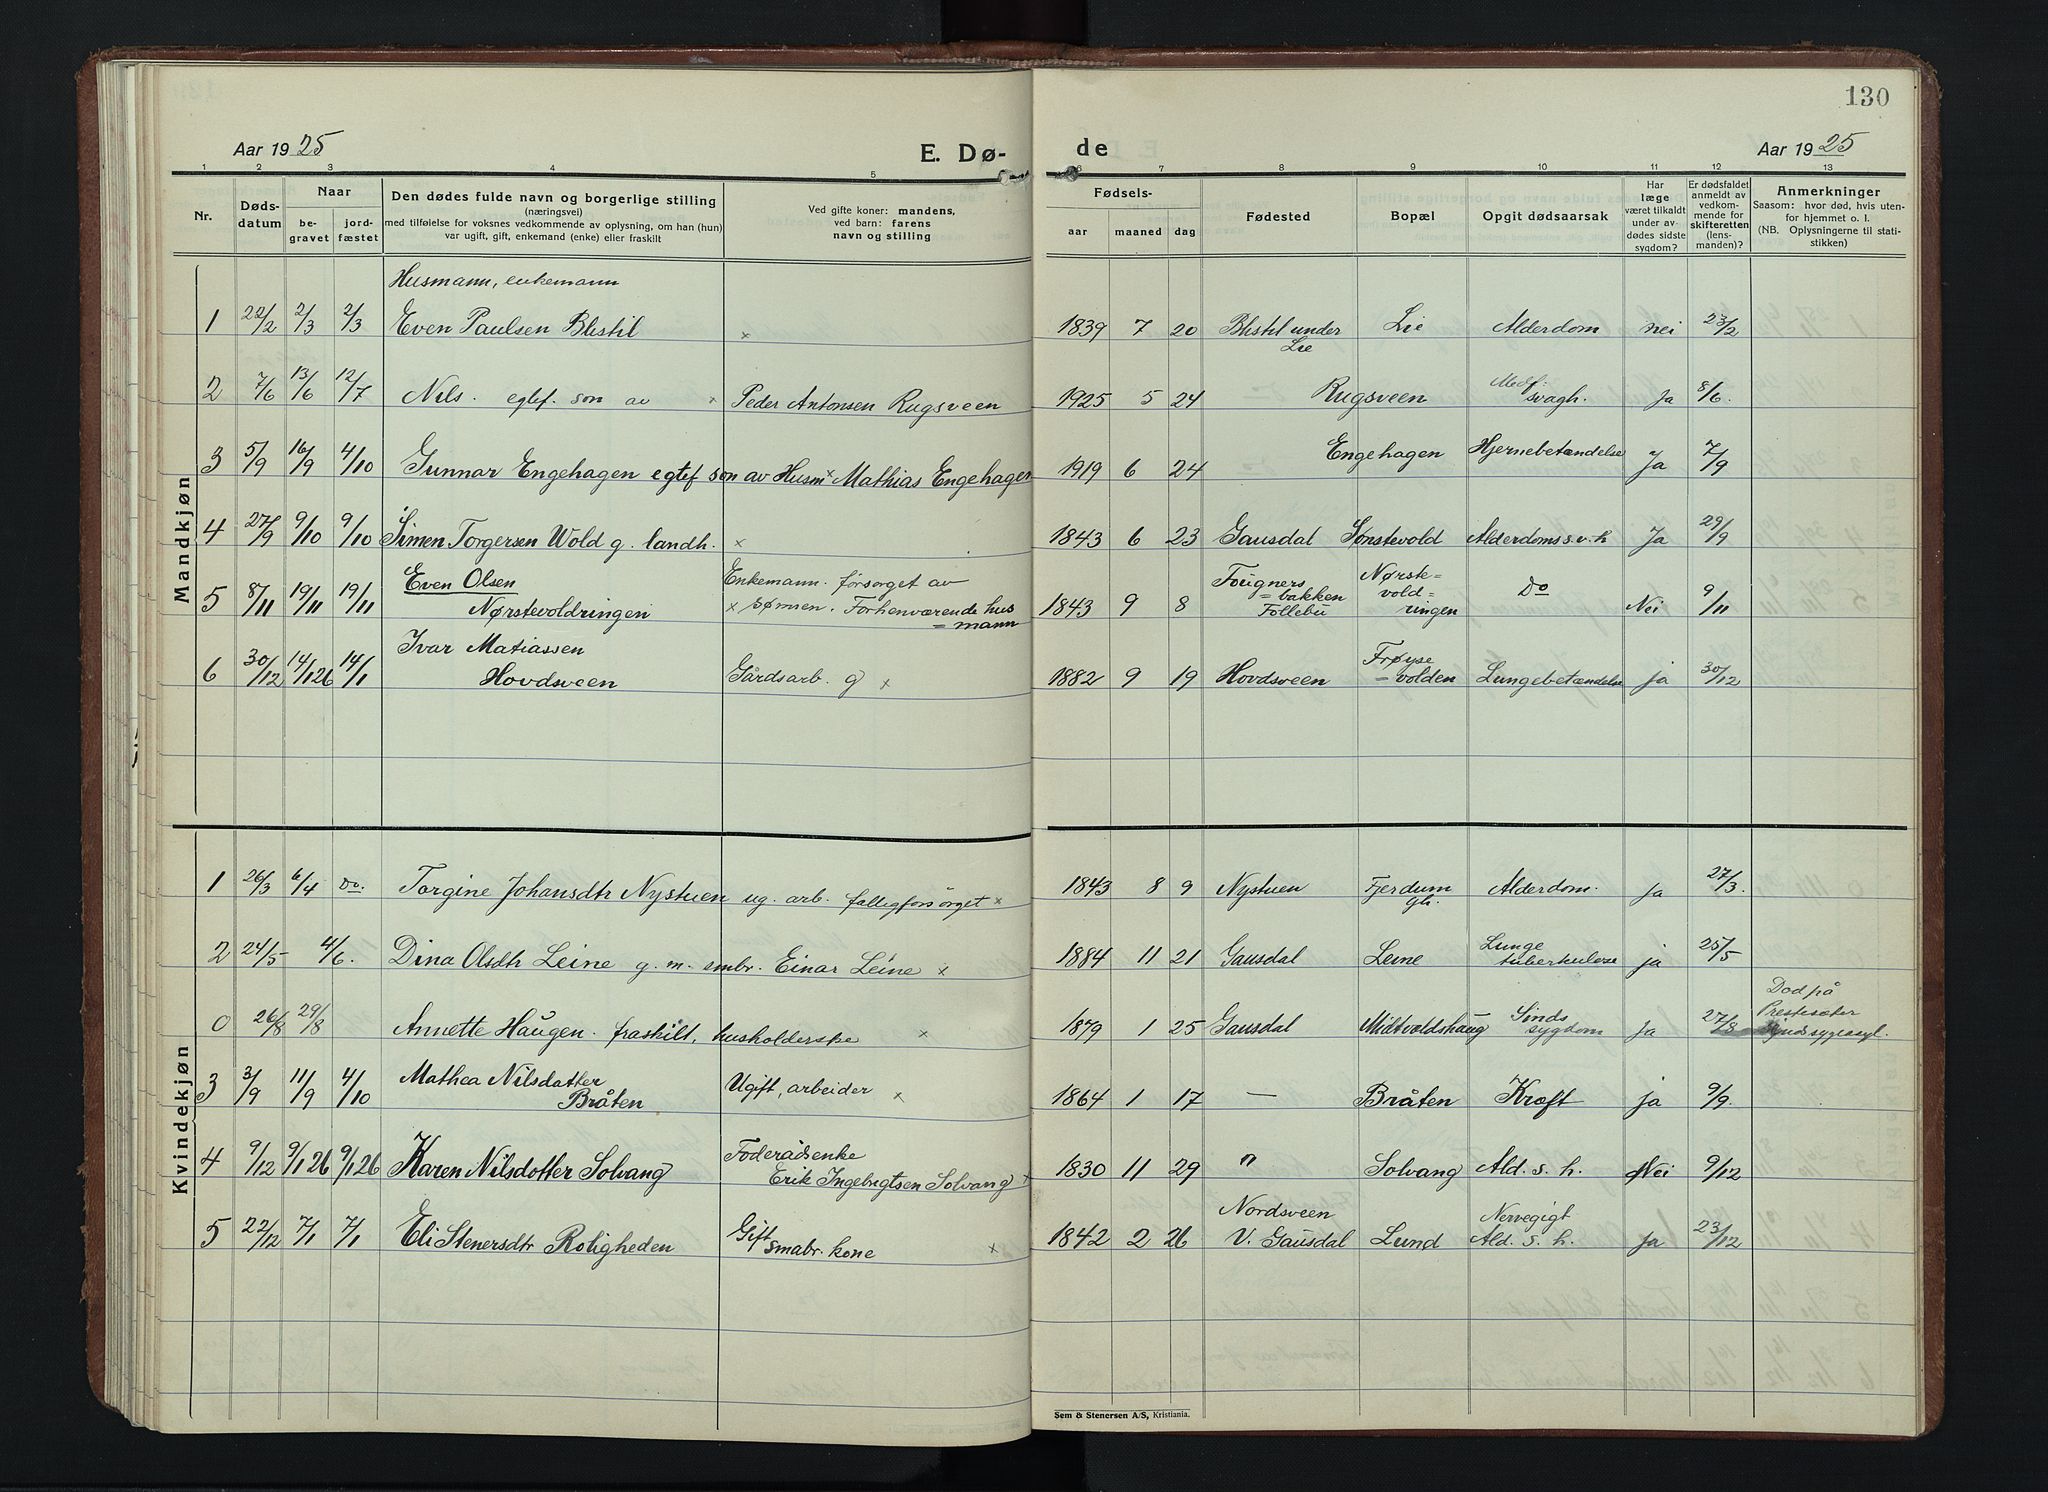 130
Aar 1925
E. Dø-
de
Aar 1925
1 2 3 4 5 6 7 8 9 10 11 12 13
Nr.
Døds-
datum
Naar
be-
gravet
jord-
fæstet
Den dødes fulde navn og borgerlige stilling
(næringsvei)
med tilføielse for voksnes vedkommende av oplysning, om han (hun)
var ugift, gift, enkemand (enke) eller fraskilt
Ved gifte koner: mandens,
ved barn: farens
navn og stilling
Fødsels-
aar maaned dag
Fødested
Bopæl
Opgit dødsaarsak
Har
læge
været tilkaldt
under av-
dødes sidste
sygdom?
Er dødsfaldet
anmeldt av
vedkom-
mende for
skifteretten
(lens-
manden)?
Anmerkninger
Saasom: hvor død, hvis uten-
for hjemmet o. l.
(NB. Oplysningerne til stati-
stikken)
Mandkjøn
Husmann, enkemann
1 22/2 2/3 2/3 Even Paulsen Blistil x 1839 7 20 Blistil under Lie Alderdom nei 23/2
Lie
2 7/6 13/6 12/7 Nils. egtef. søn av x Peder Antonsen Rugsveen 1925 5 24 Rugsveen Medf: Ja 8/6.
svagh.
3 5/9 16/9 4/10 Gunnar Engehagen egtef søn av Husm x Mathias Engehagen 1919 6 24 Engehagen Hjernebetændelse Ja 7/9
4 27/9 9/10 9/10 Simen Torgersen Wold g. landh. x 1843 6 23 Gausdal Sønstevold Alderdoms s.v.h Ja 29/9
5 8/11 19/11 19/11 Even Olsen Enkemann. forsørget av 1843 9 8 Fougners Nørste= Do Nei 9/11
Nørstevoldringen x sønnen. Forhenværende hus =bakken vold-
=mann Follebu ringen
6 30/12 14/1 26 14/1 Ivar Matiassen Gårdsarb. g x 1882 9 19 Hovdsveen Frøyse Lungebetændelse ja 30/12
Hovdsveen =volden
Kvindekjøn
1 26/3 6/4 Do. Torgine Johansdtr Nystuen ug. arb. fattigforsørget x 1843 8 9 Nystuen Fjerdum Alderdom. Ja 27/3.
gh.
2 24/5 4/6. Dina Olsdtr Leine g. m. smbr. Einar Leine x 1884 11 21 Gausdal Leine Lunge ja 25/5
tuberkulose
0 26/8 29/8 Annette Haugen. fraskilt, husholderske x 1879 1 25 Gausdal Midtvoldshaug Sinds Ja 27/8 Død på
sygdom Prestesæter
sindssygeasyl.
3 3/9 11/9 4/10 Mathea Nilsdatter Ugift, arbeider x 1864 1 17 — Bråten Kræft ja 9/9.
Bråten
4 9/12 9/1 26 9/1 26 Karen Nilsdotter Solvang Foderådsenke 1830 11 29 " Solvang Ald. s. h. Nei 9/12
Erik Ingebrigtsen Solvang x
5 22/12 7/1 7/1 Eli Stenersdtr Roligheden Gift x 1842 2 26 Nordsveen Lund Nervegigt Ja 23/12
smabr. kone V. Gausdal Ald. s. h.
Sem & Stenersen A/S, Kristiania.